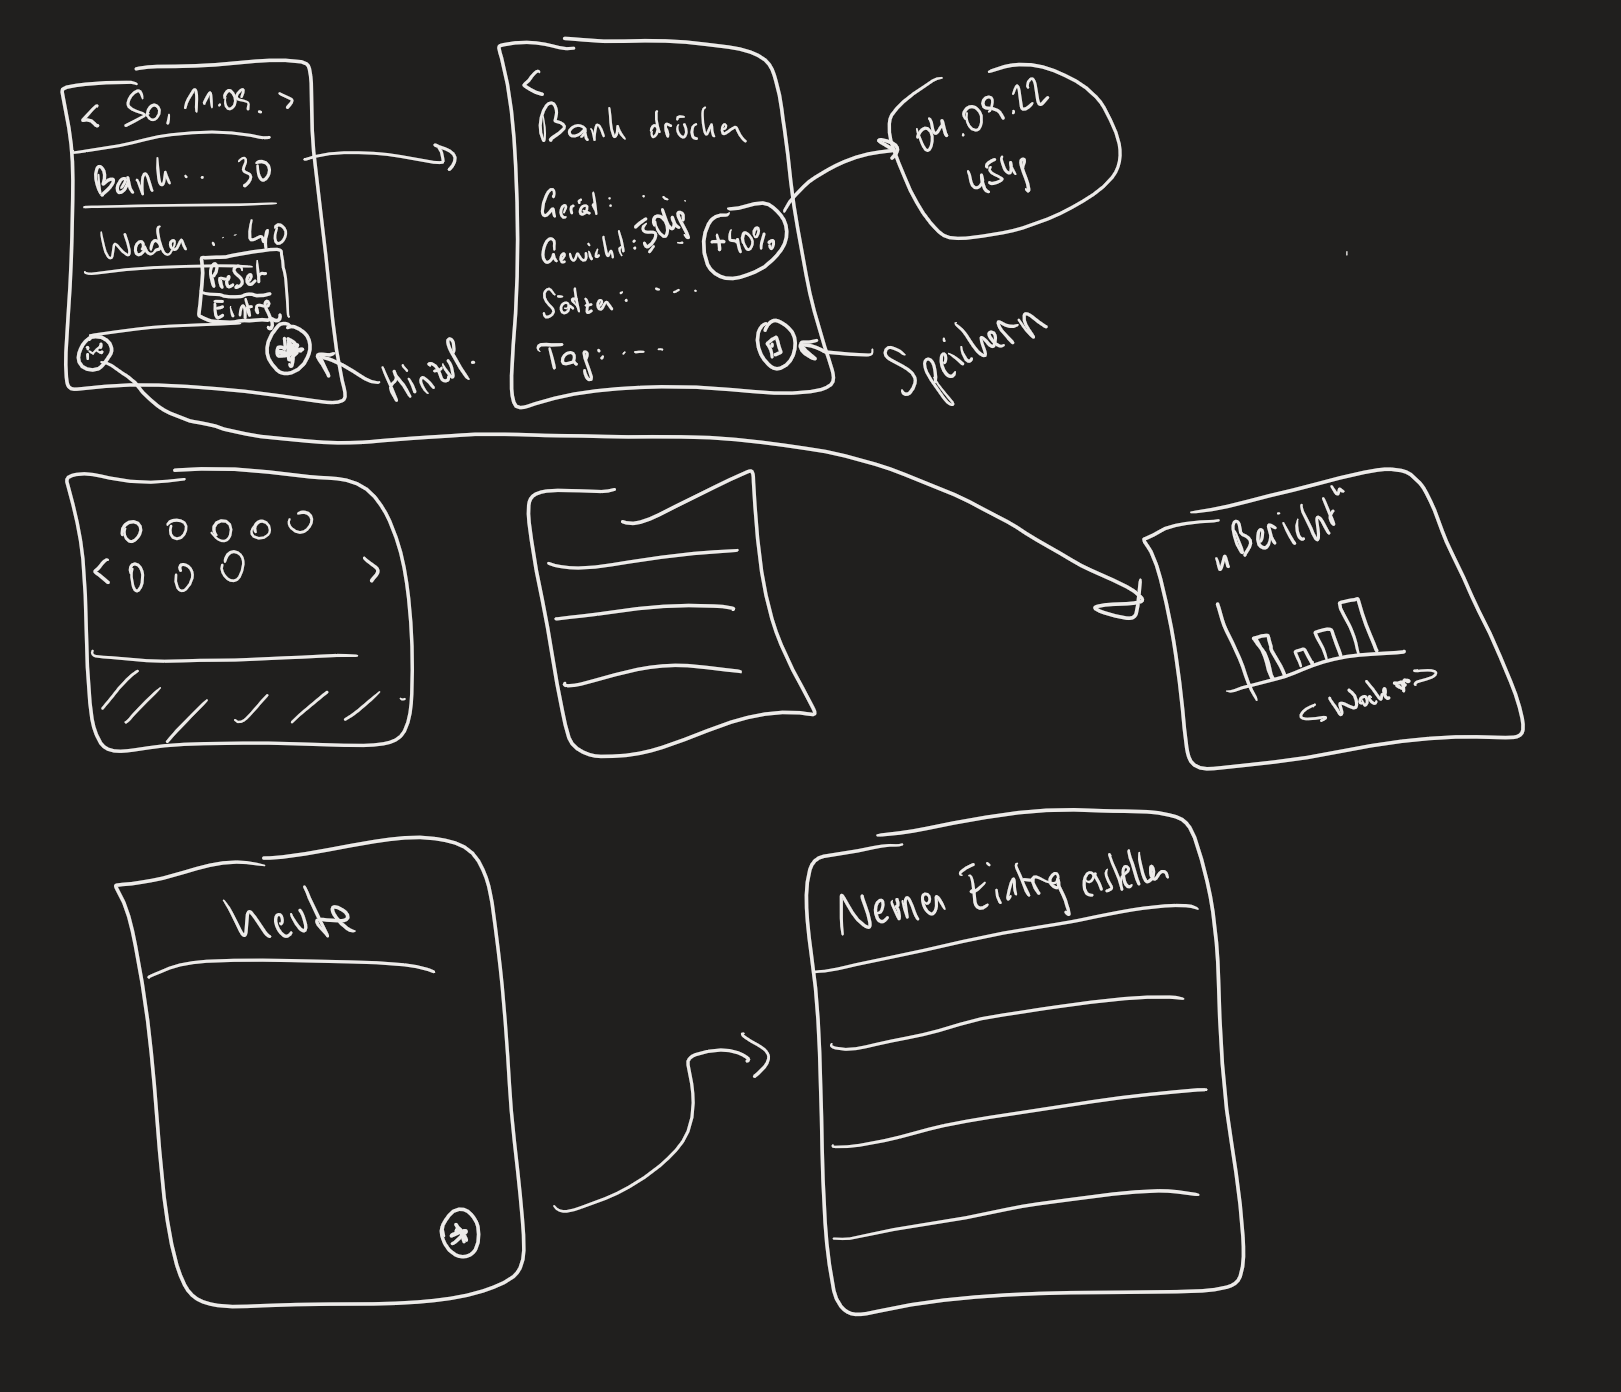 < So, 11.09. >
Bank .. 30
Waden ... 40
PreSet
Eintrg
Hinzuf.
<
Bank drücken
Gerät: ...
Gewicht: 50kg
+40%
Sätzen: ...
Tag: ...
Speichern
04.09.22
45kg
< >
„Bericht“
< Woche >
heute
Neuen Eintrg erstellen